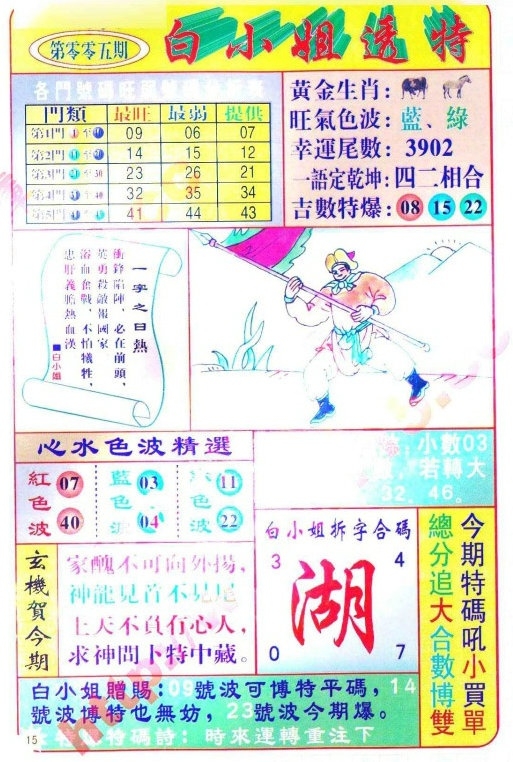 第零零五期
白小姐透特
各門號碼旺弱
門類 最旺 最弱 提供
第1門 1 至 09 06 07
第2門 至 14 15 12
第3門 至 30 23 26 21
第4門 至 40 32 35 34
第5門 至 41 44 43
黃金生肖:
旺氣色波:藍、綠
幸運尾數:3902
一語定乾坤:四二相合
吉數特爆:08 15 22
一字之曰熱
衝鋒陷陣,必在前頭,
英勇殺敵報國家
浴血奮戰,不怕犧牲,
忠肝義膽熱血漢
■白小姐
心水色波精選
紅色波 07 40
藍色 03 04
色波 11 22
小數03
若轉大
32.46。
玄機賀今期
家醜不可向外揚,
神龍見首不見尾
上天不負有心人,
求神問卜特中藏。
白小姐拆字合碼
3 4
湖
0 7
今期特碼吼小買單
總分追大合數博雙
白小姐贈賜:09號波可博特平碼,14
號波博特也無妨,23號波今期爆。
特碼詩:時來運轉重注下
15